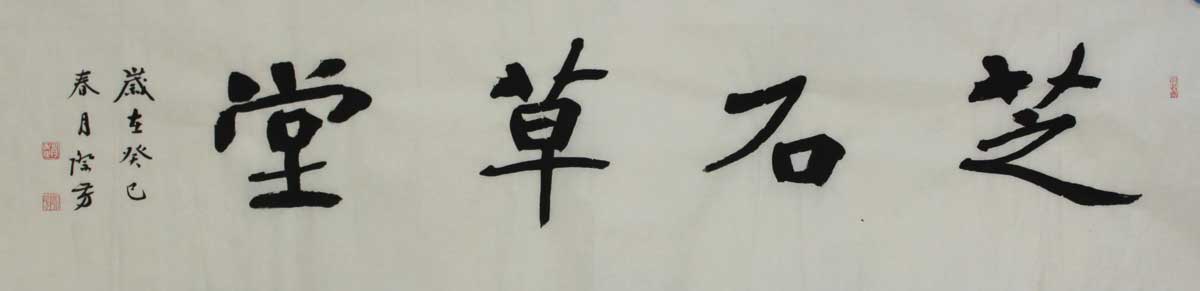 芝石草堂
歲在癸巳
春月際芳